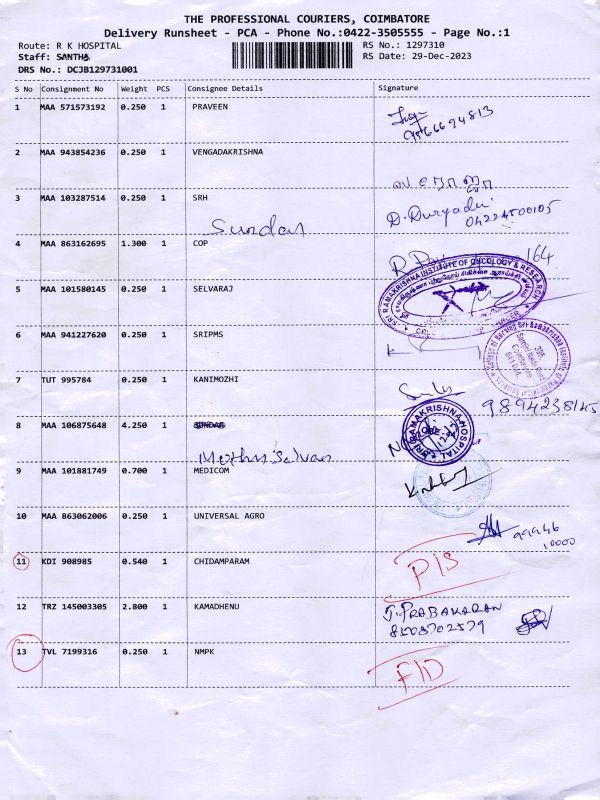 THE PROFESSIONAL COURIERS, COIMBATORE
Delivery Runsheet - PCA - Phone No.:0422-3505555 - Page No.:1
Route: R K HOSPITAL RS No.: 1297310
Staff: SANTHA RS Date: 29-Dec-2023
DRS No.: DCJB129731001
S No Consignment No Weight PCS Consignee Details Signature
1 MAA 571573192 0.250 1 PRAVEEN
9566694813
2 MAA 943854236 0.250 1 VENGADAKRISHNA
3 MAA 103287514 0.250 1 SRH
Sundar
04224500105
4 MAA 863162695 1.300 1 COP
164
SRI RAMAKRISHNA INSTITUTE OF ONCOLOGY & RESEARCH
5 MAA 101580145 0.250 1 SELVARAJ
6 MAA 941227620 0.250 1 SRIPMS
7 TUT 995784 0.250 1 KANIMOZHI
9894238145
8 MAA 106875648 4.250 1 SUNDAR
SRI RAMAKRISHNA HOSPITAL
9 MAA 101881749 0.700 1 MEDICOM
10 MAA 863062006 0.250 1 UNIVERSAL AGRO
99946
10000
11 KDI 908985 0.540 1 CHIDAMPARAM
12 TRZ 145003305 2.800 1 KAMADHENU J. PRABAKARAN
8508702579
13 TVL 7199316 0.250 1 NMPK